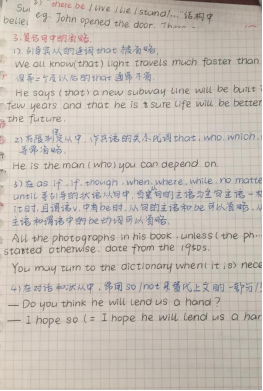 there be / live / lie / stand /..." 结构中
eg. John opened the door. Th
3. 复合句中的省略
1) 引导宾语从句的连词that 的省略,
We all know (that) light travels much faster than
He says (that) a new subway line will be built
few years and that he is sure life will be better
the future.
2) 在限制性定语从句中, 作宾语的关系代词that, who, which,
等常省略,
He is the man (who) you can depend on.
3) 在 as if, if, though, when, where, while, no matter
until 等引导的状语从句中, 当从句的主语与主句主语一
it时, 且谓语中有be时, 从句的主语和be可以省略,
主语和谓语中的be动词可以省略.
All the photographs in his book, unless (the ph
started otherwise, date from the 1950s.
You may turn to the dictionary when (it is) nece
4) 在对话和状从中, 常用 so / not 来替代上文的一部分
— Do you think he will lend us a hand?
— I hope so (= I hope he will lend us a han